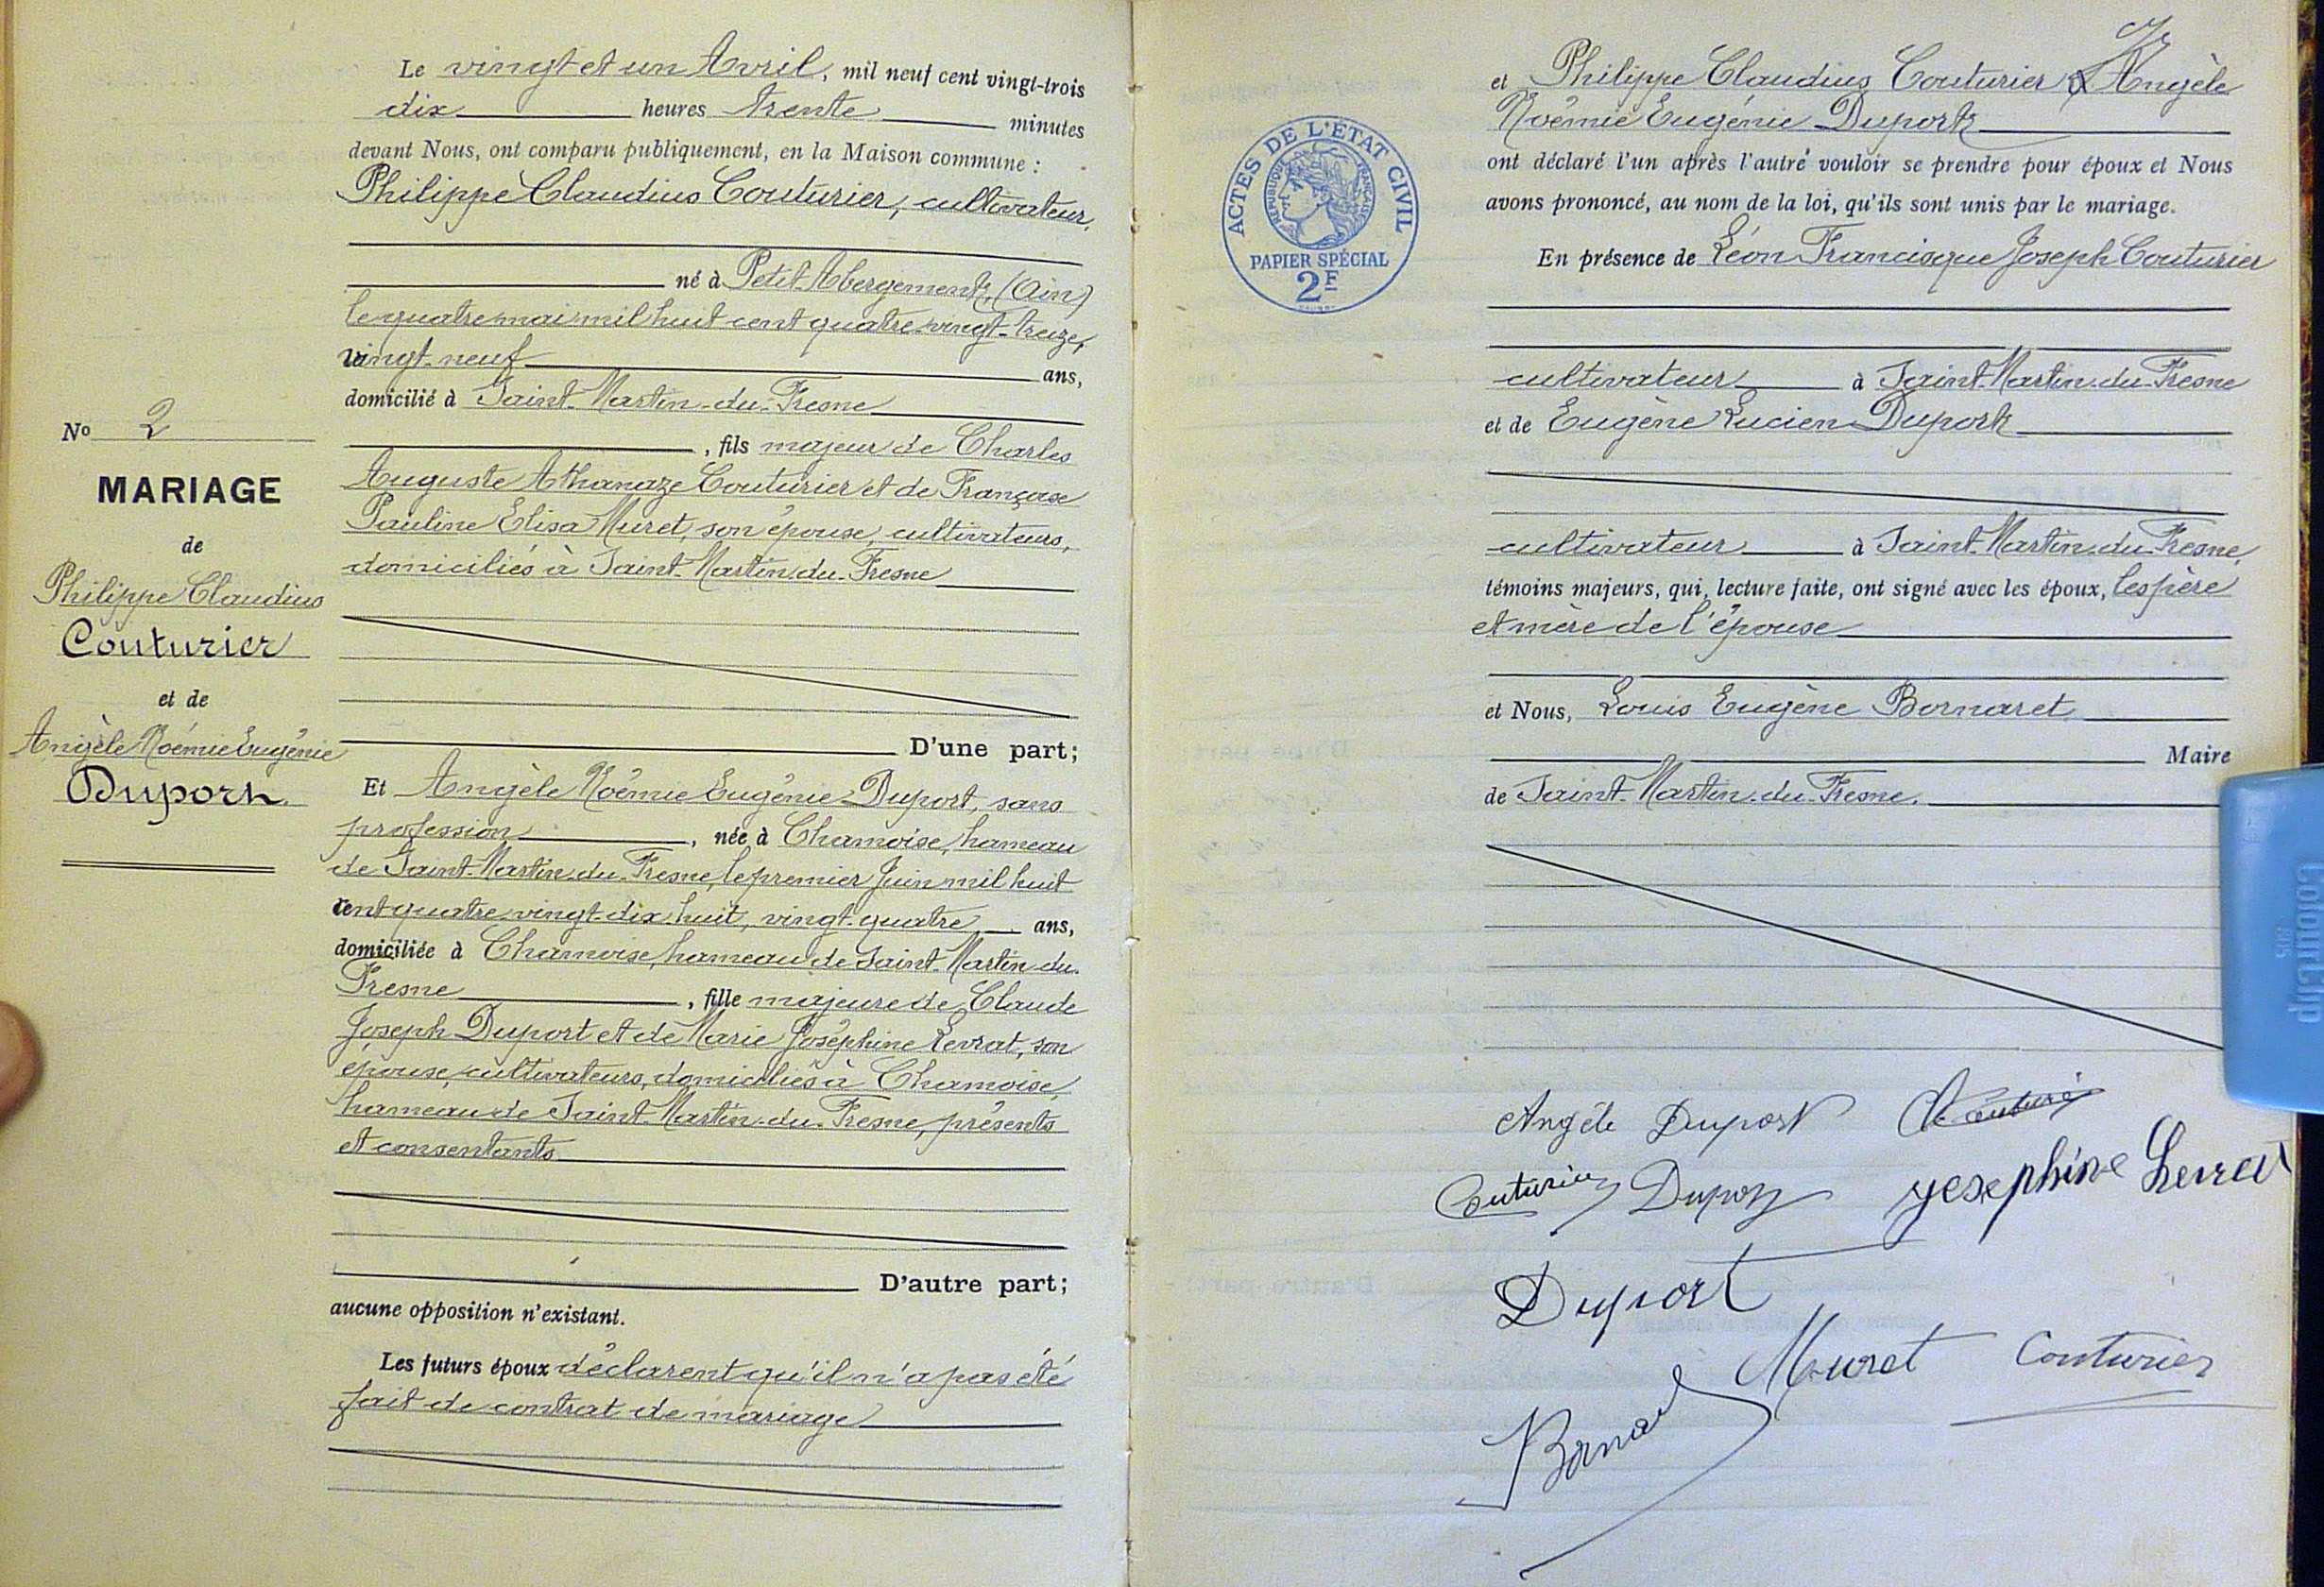 Le vingt et un Avril, mil neuf cent vingt-trois
dix heures trente minutes
devant Nous, ont comparu publiquement, en la Maison commune :
Philippe Claudius Couturier, cultivateur,
né à Petit-Abergement, (Ain)
le quatre mai mil huit cent quatre-vingt-treize,
vingt-neuf ans,
domicilié à Saint-Martin-du-Fresne
, fils majeur de Charles
Auguste Athanaze Couturier et de Françoise
Pauline Elisa Muret, son épouse, cultivateurs,
domiciliés à Saint-Martin-du-Fresne
D'une part;
Et Angèle Noémie Eugénie Duport, sans
profession, née à Chamoise, hameau
de Saint-Martin-du-Fresne, le premier Juin mil huit
cent quatre-vingt-dix-huit, vingt-quatre ans,
domiciliée à Chamoise, hameau de Saint-Martin-du-
Fresne, fille majeure de Claude
Joseph Duport et de Marie Joséphine Levrat, son
épouse, cultivateurs, domiciliés à Chamoise,
hameau de Saint-Martin-du-Fresne, présents
et consentants
D'autre part;
aucune opposition n'existant.
Les futurs époux déclarent qu'il n'a pas été
fait de contrat de mariage
No 2
MARIAGE
de
Philippe Claudius
Couturier
et de
Angèle Noémie Eugénie
Duport
ACTES DE L'ÉTAT CIVIL
RÉPUBLIQUE FRANÇAISE
PAPIER SPÉCIAL
2F
et Philippe Claudius Couturier & Angèle
Noémie Eugénie Duport
ont déclaré l'un après l'autre vouloir se prendre pour époux et Nous
avons prononcé, au nom de la loi, qu'ils sont unis par le mariage.
En présence de Léon Francisque Joseph Couturier
cultivateur à Saint-Martin-du-Fresne
et de Eugène Lucien Duport
cultivateur à Saint-Martin-du-Fresne,
témoins majeurs, qui, lecture faite, ont signé avec les époux, les père
et mère de l'épouse
et Nous, Louis Eugène Bornaret
Maire
de Saint-Martin-du-Fresne.
Angèle Duport
Couturier Duport Josephine Levrat
Duport
Muret Couturier
Colourtap